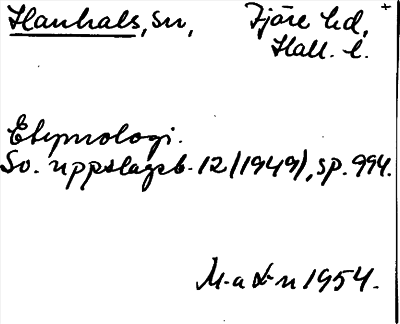 Hanhals, sn, Fjäre hd,
Hall. l.
Etymologi.
Sv. uppslagsb. 12 (1949), sp. 994.
M-a d-n 1954.